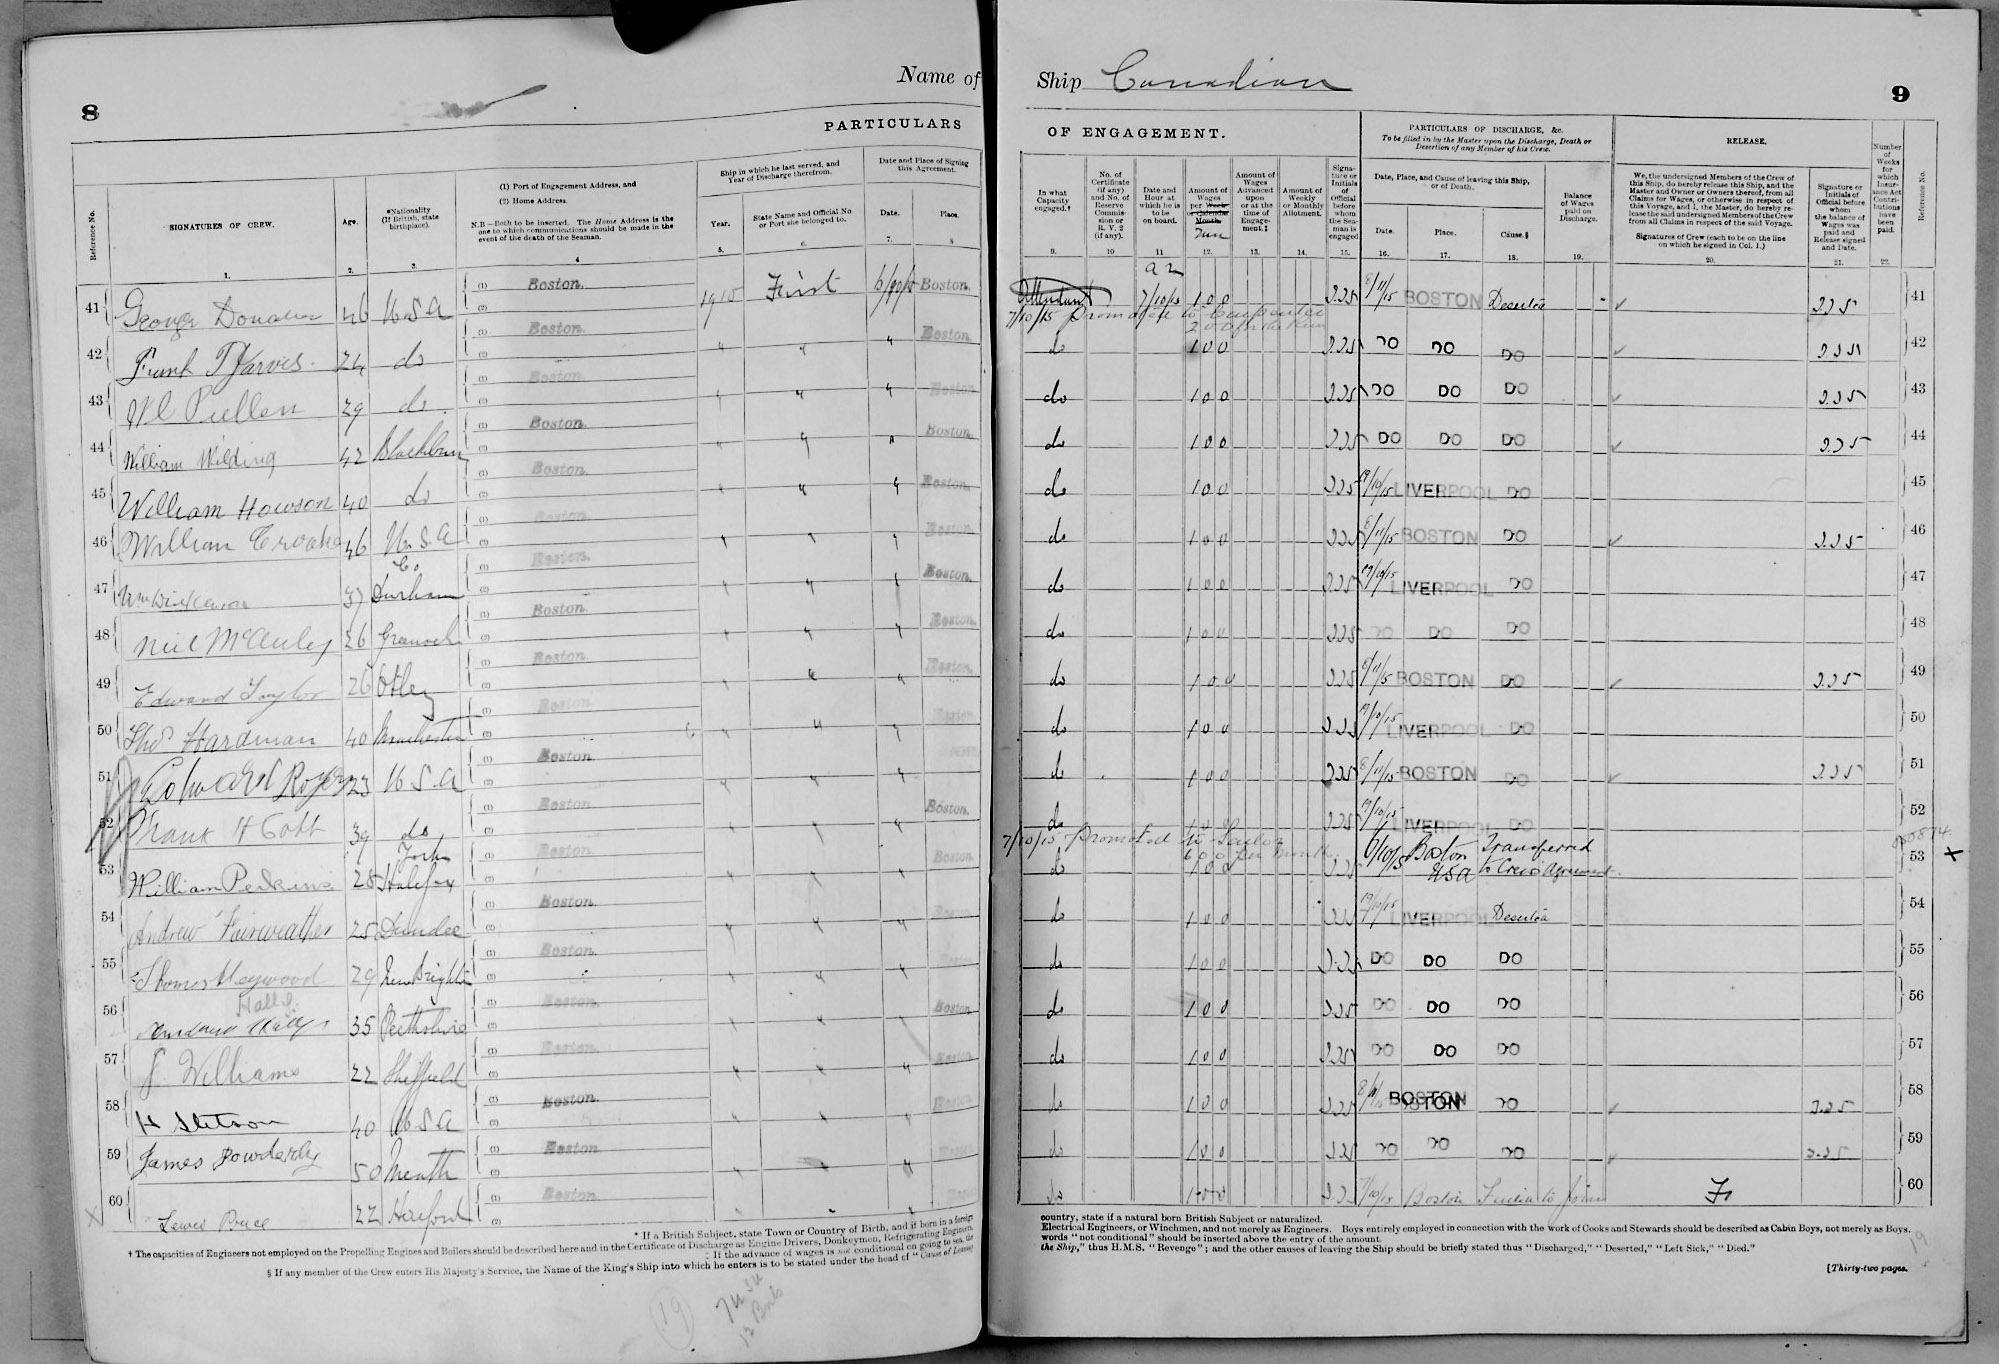 8
Name of
PARTICULARS
Reference No.
SIGNATURES OF CREW.
1.
Age.
2.
*Nationality
(If British, state
birthplace).
3.
(1) Port of Engagement Address, and
(2) Home Address.
N.B—Both to be inserted. The Home Address is the
one to which communications should be made in the
event of the death of the Seaman.
4
Ship in which he last served, and
Year of Discharge therefrom.
Year.
5.
State Name and Official No.
or Port she belonged to.
6.
Date and Place of Signing
this Agreement.
Date.
7.
Place.
8
41 George Donahue 46 U S A (1) Boston. (2) 1915 First Boston.
42 Frank T Jarvis 24 do (1) Boston. (2) " " " Boston.
43 W L Pullen 29 do (1) Boston. (2) " " " Boston
44 William Wilding 42 Blackburn (1) Boston. (2) " " " Boston.
45 William Howson 40 do (1) Boston. (2) " " " Boston.
46 William Crooke 46 U.S.A (1) Boston. (2) " " " Boston
47 37 Co. Durham (1) Boston. (2) " " " Boston.
48 Neil McAuley 26 Greenock (1) Boston. (2) " " " Boston.
49 Edward Taylor 26 Otley (1) Boston. (2) " " " Boston.
50 Thos Hardman 40 Manchester (1) Boston. (2) " " " Boston
51 Edward 23 U S A (1) Boston. (2) " " "
52 Frank H Cobb 39 do (1) Boston (2) " " " Boston.
53 William Perkins 28 York Halifax (1) Boston. (2) " " " Boston
54 Andrew Fairweather 25 Dundee (1) Boston. (2) " " " Boston
55 Thomas Heywood 29 New Brighton (1) Boston. (2) " " " Boston
56 Halls 35 Perthshire (1) Boston. (2) " " " Boston
57 J. Williams 22 Sheffield (1) Boston. (2) " " " Boston
58 H Stetson 40 U S A (1) Boston. (2) " " " Boston
59 James Powderly 50 Meath (1) Boston (2) " " " Boston
60 22 Hereford (1) Boston. (2) " " " Boston
* If a British Subject, state Town or Country of Birth, and if born in a foreign
† The capacities of Engineers not employed on the Propelling Engines and Boilers should be described here and in the Certificate of Discharge as Engine Drivers, Donkeymen, Refrigerating Engineers,
‡ If the advance of wages is not conditional on going to sea, the
§ If any member of the Crew enters His Majesty's Service, the Name of the King's Ship into which he enters is to be stated under the head of "Cause of Leaving
19
Ship Canadian
9
OF ENGAGEMENT.
PARTICULARS OF DISCHARGE, &c.
To be filled in by the Master upon the Discharge, Death or
Desertion of any Member of his Crew.
RELEASE.
In what
Capacity
engaged.†
9.
No. of
Certificate
(if any)
and No. of
Reserve
Commis-
sion or
R. V. 2
(if any).
10
Date and
Hour at
which he is
to be
on board.
11
Amount of
Wages
per Week
or Calendar
Month.
Run
12.
Amount of
Wages
Advanced
upon
or at the
time of
Engage-
ment.‡
13.
Amount of
Weekly
or Monthly
Allotment.
14.
Signa-
ture or
Initials
of
Official
before
whom
the Sea-
man is
engaged
15.
Date, Place, and Cause of leaving this Ship,
or of Death.
Date.
16.
Place.
17.
Cause.§
18.
Balance
of Wages
paid on
Discharge.
19.
We, the undersigned Members of the Crew of
this Ship, do hereby release this Ship, and the
Master and Owner or Owners thereof, from all
Claims for Wages, or otherwise in respect of
this Voyage, and I, the Master, do hereby re-
lease the said undersigned Members of the Crew
from all Claims in respect of the said Voyage.
Signatures of Crew (each to be on the line
on which he signed in Col. 1.)
20.
Signature or
Initials of
Official before
whom
the balance of
Wages was
paid and
Release signed
and Date.
21.
Number
of
Weeks
for
which
Insur-
ance Act
Contri-
butions
have
been
paid.
22.
Reference No.
Attendant 7/10/15 100 8/11/15 BOSTON Deserted 41
7/10/15 promoted to Carpenter
do 100 DO DO DO 42
do 100 DO DO DO 43
do 100 DO DO DO 44
do 100 19/10/15 LIVERPOOL DO 45
do 100 8/11/15 BOSTON DO 46
do 100 19/10/15 LIVERPOOL DO 47
do 100 DO DO DO 48
do 100 8/11/15 BOSTON DO 49
do 100 19/10/15 LIVERPOOL DO 50
do 100 8/11/15 BOSTON DO 51
do 100 19/10/15 LIVERPOOL DO 52
7/10/15 promoted to Sailor
600 per month
do 100 Boston USA Transferred to Crew Agreement 53
do 100 19/10/15 LIVERPOOL Deserted 54
do 100 DO DO DO 55
do 100 DO DO DO 56
do 100 DO DO DO 57
do 100 BOSTON DO 58
do 100 DO DO DO 59
do 100 7/10/15 Boston Failed to join 60
country, state if a natural born British Subject or naturalized.
Electrical Engineers, or Winchmen, and not merely as Engineers. Boys entirely employed in connection with the work of Cooks and Stewards should be described as Cabin Boys, not merely as Boys.
words "not conditional" should be inserted above the entry of the amount.
the Ship," thus H.M.S. "Revenge"; and the other causes of leaving the Ship should be briefly stated thus "Discharged," "Deserted," "Left Sick," "Died."
19
[Thirty-two pages.